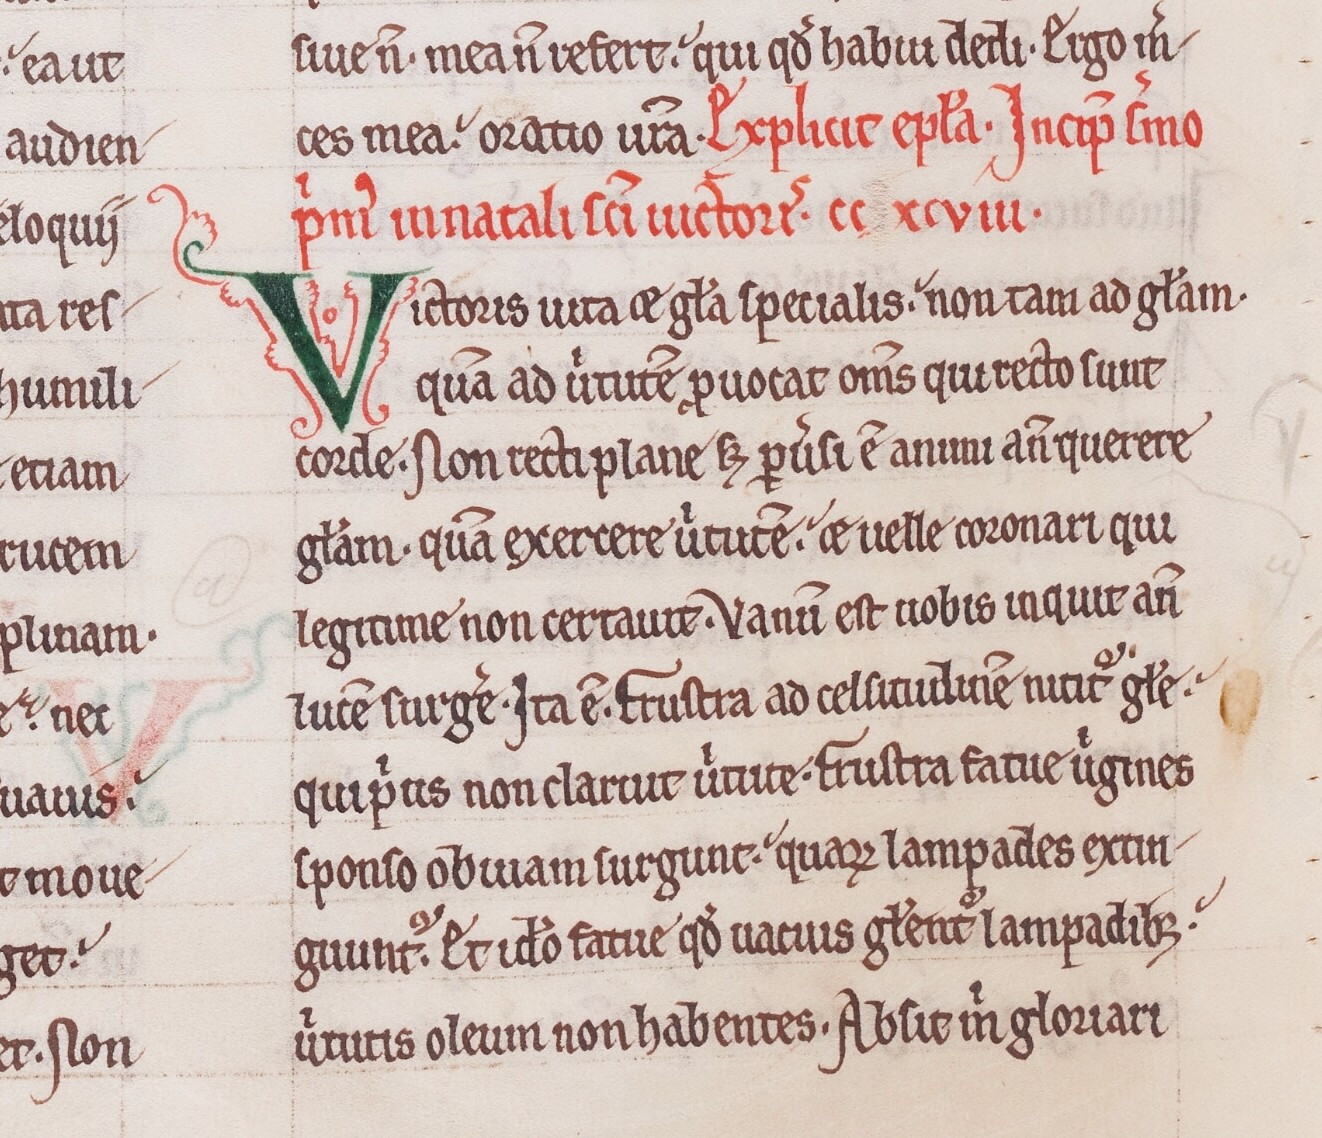 : ea ut
audien
eloquij
ata res
humili
etiam
crucem
plinam.
nec
uauius.
t moue
get.
et. Non
siue n̄. mea n̄ refert. qui qd̓ habui dedi. Ergo m̄
ces mea. oratio ur̄a. Explicit epl̄a. Incip̄ s̓mo
p̓m᷒ in natali sc̄i uictor̓. cc xcviii.
Victoris uita & gl̄a specialis. non tam ad gl̄am.
quā ad u̓tutē ꝓuocat om̄s qui recto sunt
corde. Non recti plane sꝫ ꝑu̓si ē animi an̄ querere
gl̄am. quā exercere u̓tutē. & uelle coronari qui
legitime non certauit. Vanū est uobis inquit an̄
lucē surg̓e. Ita ē. frustra ad celsitudinē nitit᷑ gl̄e.
qui p̓us non claruit u̓tute. frustra fatue u̓gines
sponso obuiam surgunt. quaꝝ lampades extin
guunt᷑. Et id̄o fatue qd̓ uacuis gl̄ent᷑ lampadibꝫ.
u̓tutis oleum non habentes. Absit m̓ gloriari